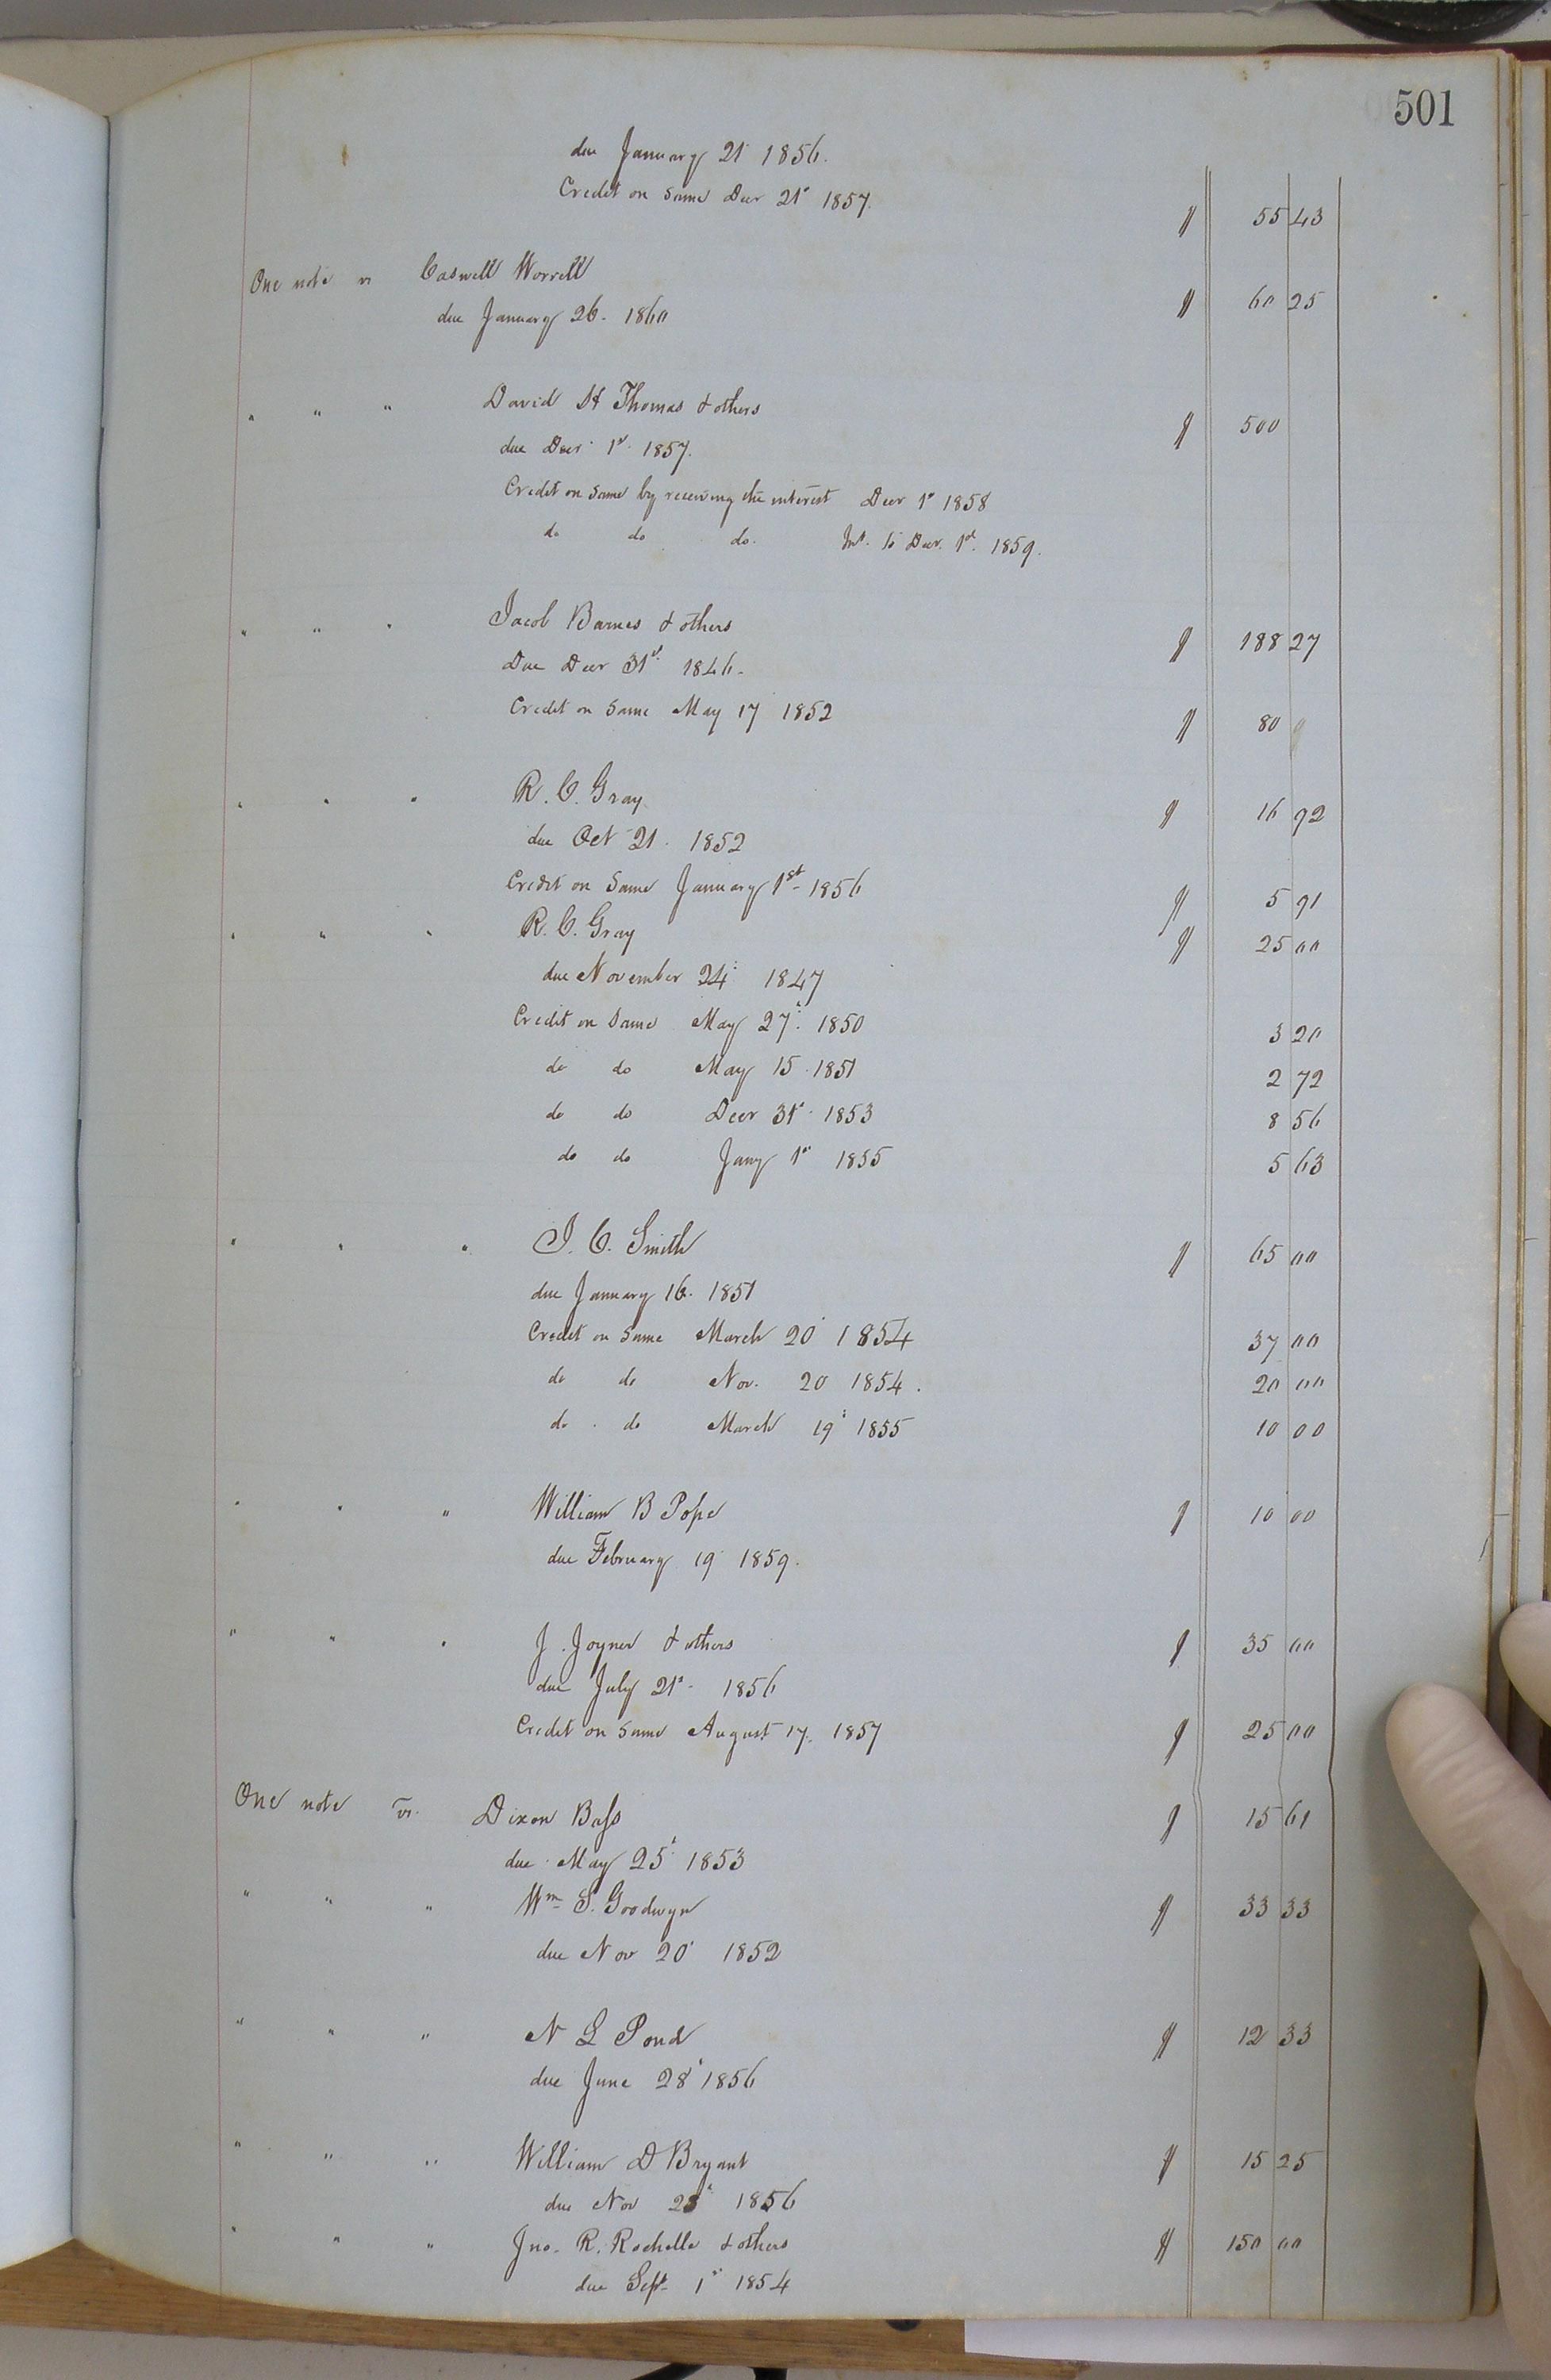 501
due January 21 1856.
Credit on same Decr 21st 1857. $ 55 43
One note vs Caswell Worrell
due January 26. 1860 $ 60 25
" " " David H Thomas & others
due Decr 1st 1857. $ 500
Credit on same by receiving the interest Decr 1st 1858
do do do. Int. to Decr. 1st. 1859.
" " " Jacob Barnes & others $ 188 27
Due Decr 31st 1846.
Credit on same May 17 1852 $ 80
" " " R. C. Gray $ 16 92
due Oct 21. 1852
Credit on Same January 1st 1856 $ 5 91
" " " R. C. Gray $ 25 00
due November 24 1847
Credit on same May 27. 1850 3 20
do do May 15. 1851 2 72
do do Decr 31st 1853 8 56
do do Jany 1st 1855 5 63
" " " J. C. Smith $ 65 00
due January 16. 1851
Credit on same March 20 1854 37 00
do do Nov. 20 1854. 20 00
do do March 19 1855 10 00
" " " William B Pope $ 10 00
due February 19 1859.
" " " J. Joyner & others $ 35 00
due July 21st 1856
Credit on same August 17. 1857 $ 25 00
One note vs. Dixon Bass $ 15 61
due May 25 1853
" " " Wm S. Goodwyn $ 33 33
due Nov 20 1852
" " " N L Pond $ 12 33
due June 28 1856
" " " William D Bryant $ 15 25
due Nov 1856
" " " Jno. R. Rochelle & others $ 150 00
due Sept. 1st 1854